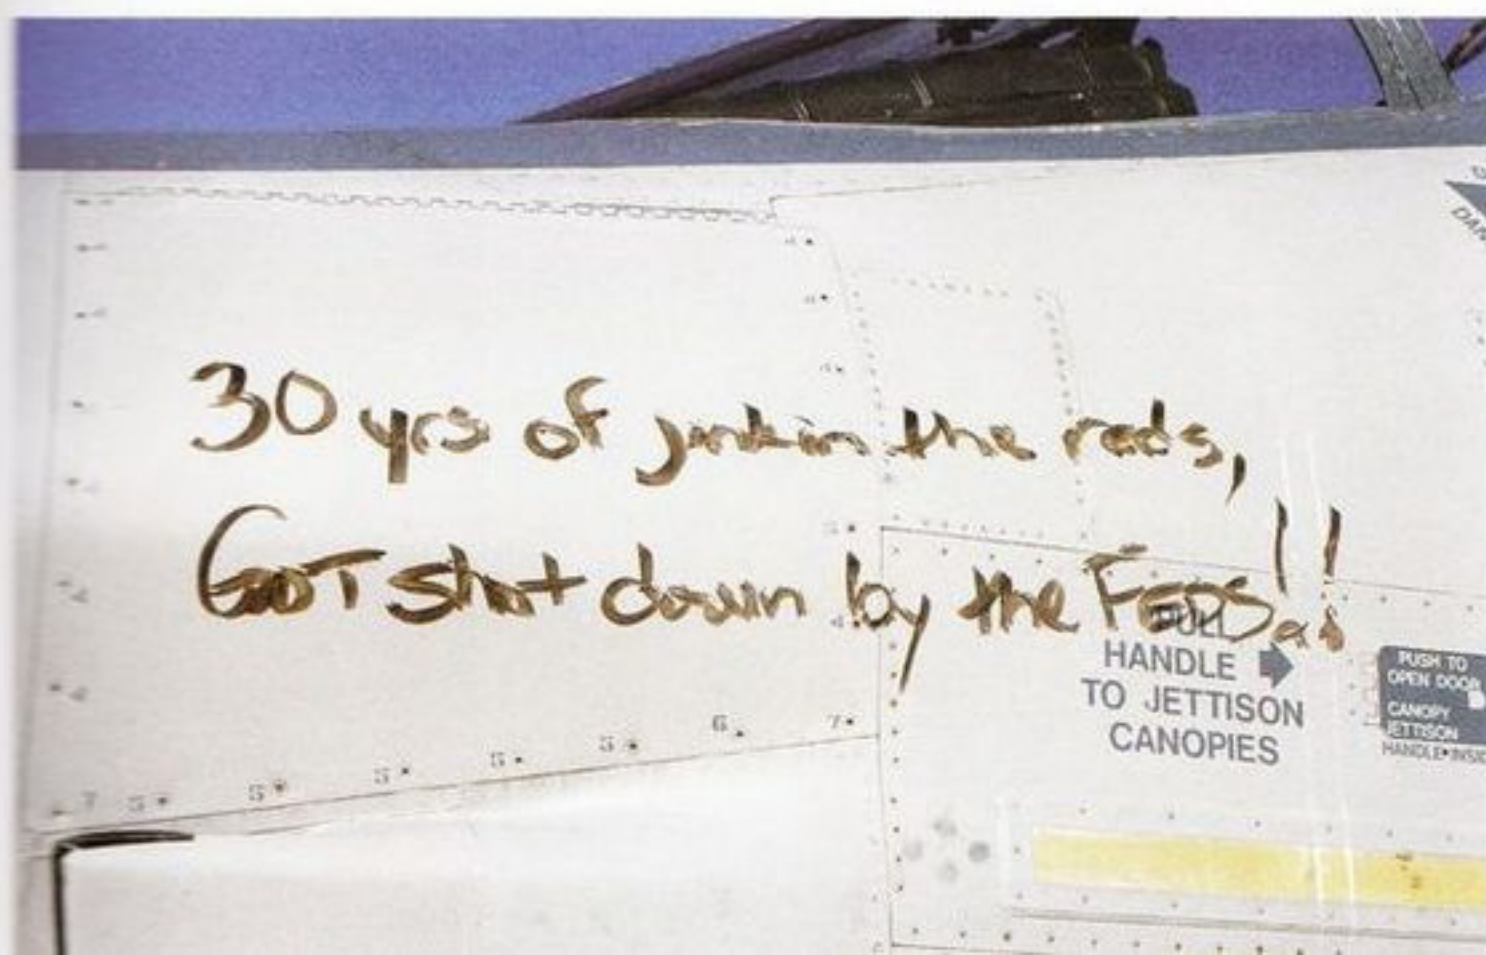 30 yrs of jinkin the reds,
GOT shot down by the FEDS!!
PULL
HANDLE
TO JETTISON
CANOPIES
PUSH TO
OPEN DOOR
CANOPY
JETTISON
HANDLE INSIDE
7 5 5 5 5 5 6 7